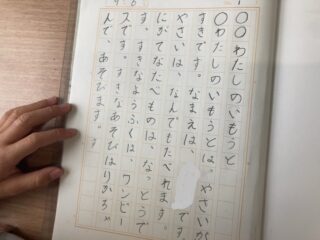 〇〇わたしのいもうと
〇わたしのいもうとは。やさいが
すきです。なまえは、です
やさいは、なんでもたべれます。
にがてなたべものは、なっとうで
す。すきなようふくは、ワンピー
スです。すきなあそびはりかちゃ
んで、あそびます。す